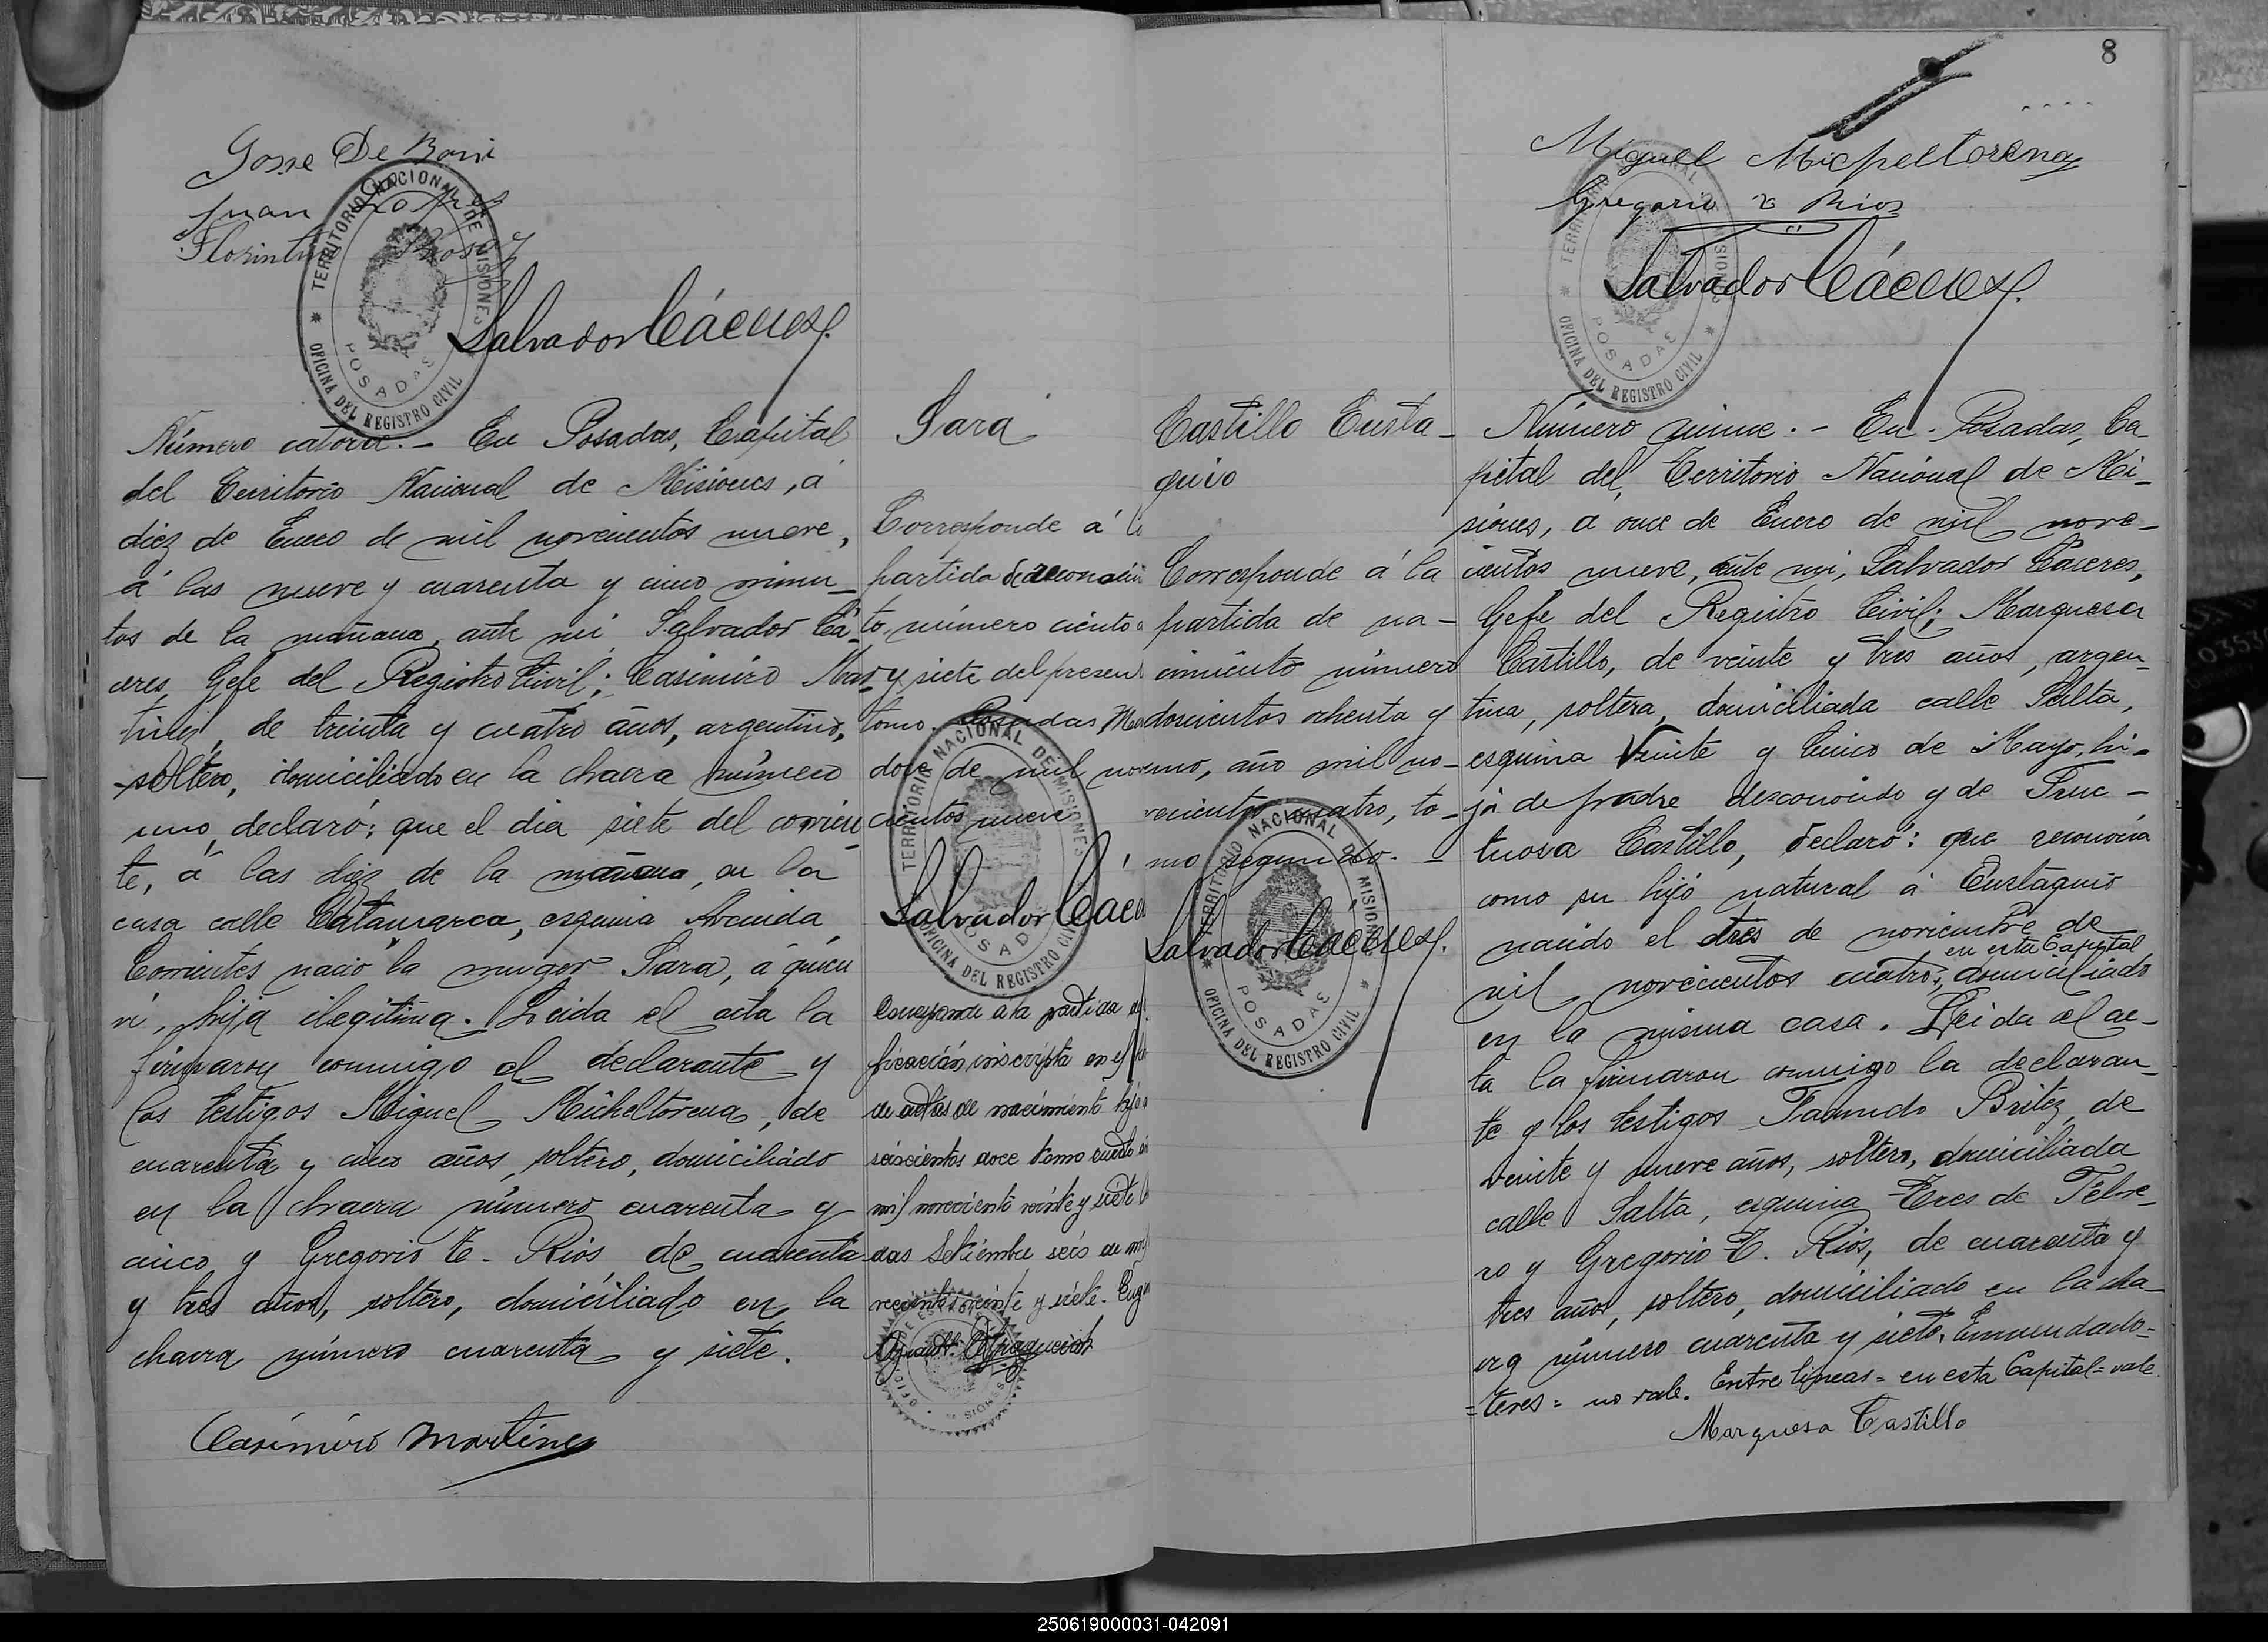 Josse De Boni
Juan Lopez
Florintino
Salvador Cáceres
TERRITORIO NACIONAL DE MISIONES
POSADAS
OFICINA DEL REGISTRO CIVIL
Número catorce.- En Posadas, Capital
del Territorio Nacional de Misiones, á
diez de Enero de mil novecientos nueve,
á las nueve y cuarenta y cinco minu-
tos de la mañana, ante mí, Salvador Cá-
ceres, Gefe del Registro Civil; Casimiro Mar-
tinez, de treinta y cuatro años, argentino,
soltero, domiciliado en la chacra número
uno, declaró: que el dia siete del corrien
te, á las diez de la mañana, en la
casa calle Catamarca, esquina Avenida
Corrientes nació la muger Sara, á quien
ví, hija ilegítima. Leida el acta la
firmaron conmigo el declarante y
los testigos Miguel Micheltorena, de
cuarenta y cinco años, soltero, domiciliado
en la chacra número cuarenta y
cinco y Gregorio E. Rios, de cuarenta
y tres años, soltero, domiciliado en la
chacra número cuarenta y siete.
Casimiro Martinez
Sara
Corresponde á la
partida de reconocimi
to, número ciento
y siete del presen
tomo. Posadas,
doce de mil no
cientos nueve
TERRITORIO NACIONAL DE MISIONES
POSADAS
OFICINA DEL REGISTRO CIVIL
Salvador Các
Corresponde a la partida
ficación inscripta en el
de actas de nacimiento fojas
seiscientos doce tomo cuarto
mil novecientos veinte y siete
das Setiembre seis de mi
vecientos veinte y siete.
Castillo Eusta-
quio
Corresponde á la
partida de na-
cimiento número
doscientos ochenta y
uno, año mil no-
vecientos cuatro, to-
mo segundo. -
TERRITORIO NACIONAL DE MISIONES
POSADAS
OFICINA DEL REGISTRO CIVIL
Salvador Cáceres
8
Miguel Micheltorena
Gregorio E Rios
Salvador Cáceres
TERRITORIO NACIONAL DE MISIONES
POSADAS
OFICINA DEL REGISTRO CIVIL
Número quince.- En Posadas, Ca
pital del Territorio Nacional de Mi-
siones, á once de Enero de mil nove-
cientos nueve, ante mí, Salvador Cáceres,
Gefe del Registro Civil; Marquesa
Castillo, de veinte y tres años, argen-
tina, soltera, domiciliada calle Salta,
esquina Veinte y Cinco de Mayo, hi-
ja de padre desconocido y de Fruc-
tuosa Castillo, declaró: que reconocía
como su hijo natural á Eustaquio
nacido el dtres de noviembre de
en esta Capital
mil novecientos cuatro; domiciliado
en la misma casa. Leida el ac-
ta la firmaron conmigo la declaran-
te y los testigos Facundo Britez, de
veinte y nueve años, soltero, domiciliada
calle Salta, esquina Tres de Febre-
ro y Gregorio E. Rios, de cuarenta y
tres años, soltero, domiciliado en la cha-
cra número cuarenta y siete. Enmendado=
=teres= no vale. Entre lineas= en esta Capital= vale.
Marquesa Castillo
250619000031-042091